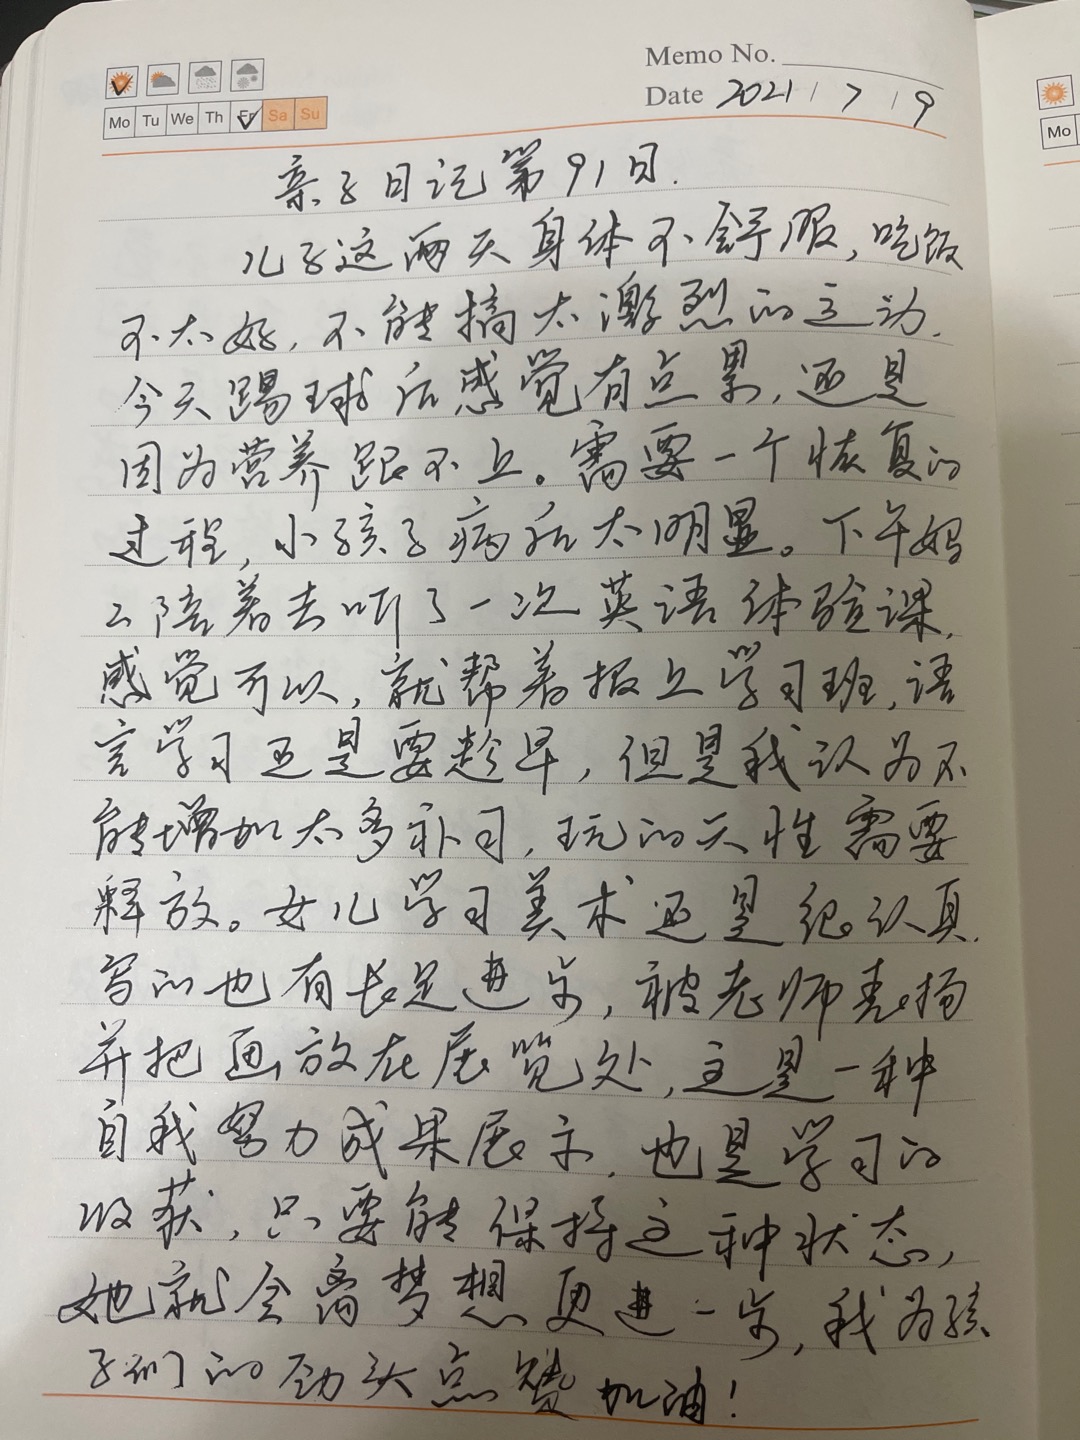 Memo No.
Mo Tu We Th Fr Sa Su
Date 2021/7/9
Mo
亲子日记第91日.
儿子这两天身体不舒服,吃饭
不太好,不能搞太激烈的运动.
今天踢球后感觉有点累,还是
因为营养跟不上。需要一个恢复的
过程,小孩子病后太明显。下午妈
妈陪着去听了一次英语体验课,
感觉可以,就帮着报上学习班,语
言学习还是要趁早,但是我认为不
能增加太多补习,玩的天性需要
释放。女儿学习美术还是很认真,
写的也有长足进步,被老师表扬
并把画放在展览处,这是一种
自我努力成果展示,也是学习的
收获,只要能保持这种状态,
她就会离梦想更进一步,我为孩
子们的劲头点赞加油!